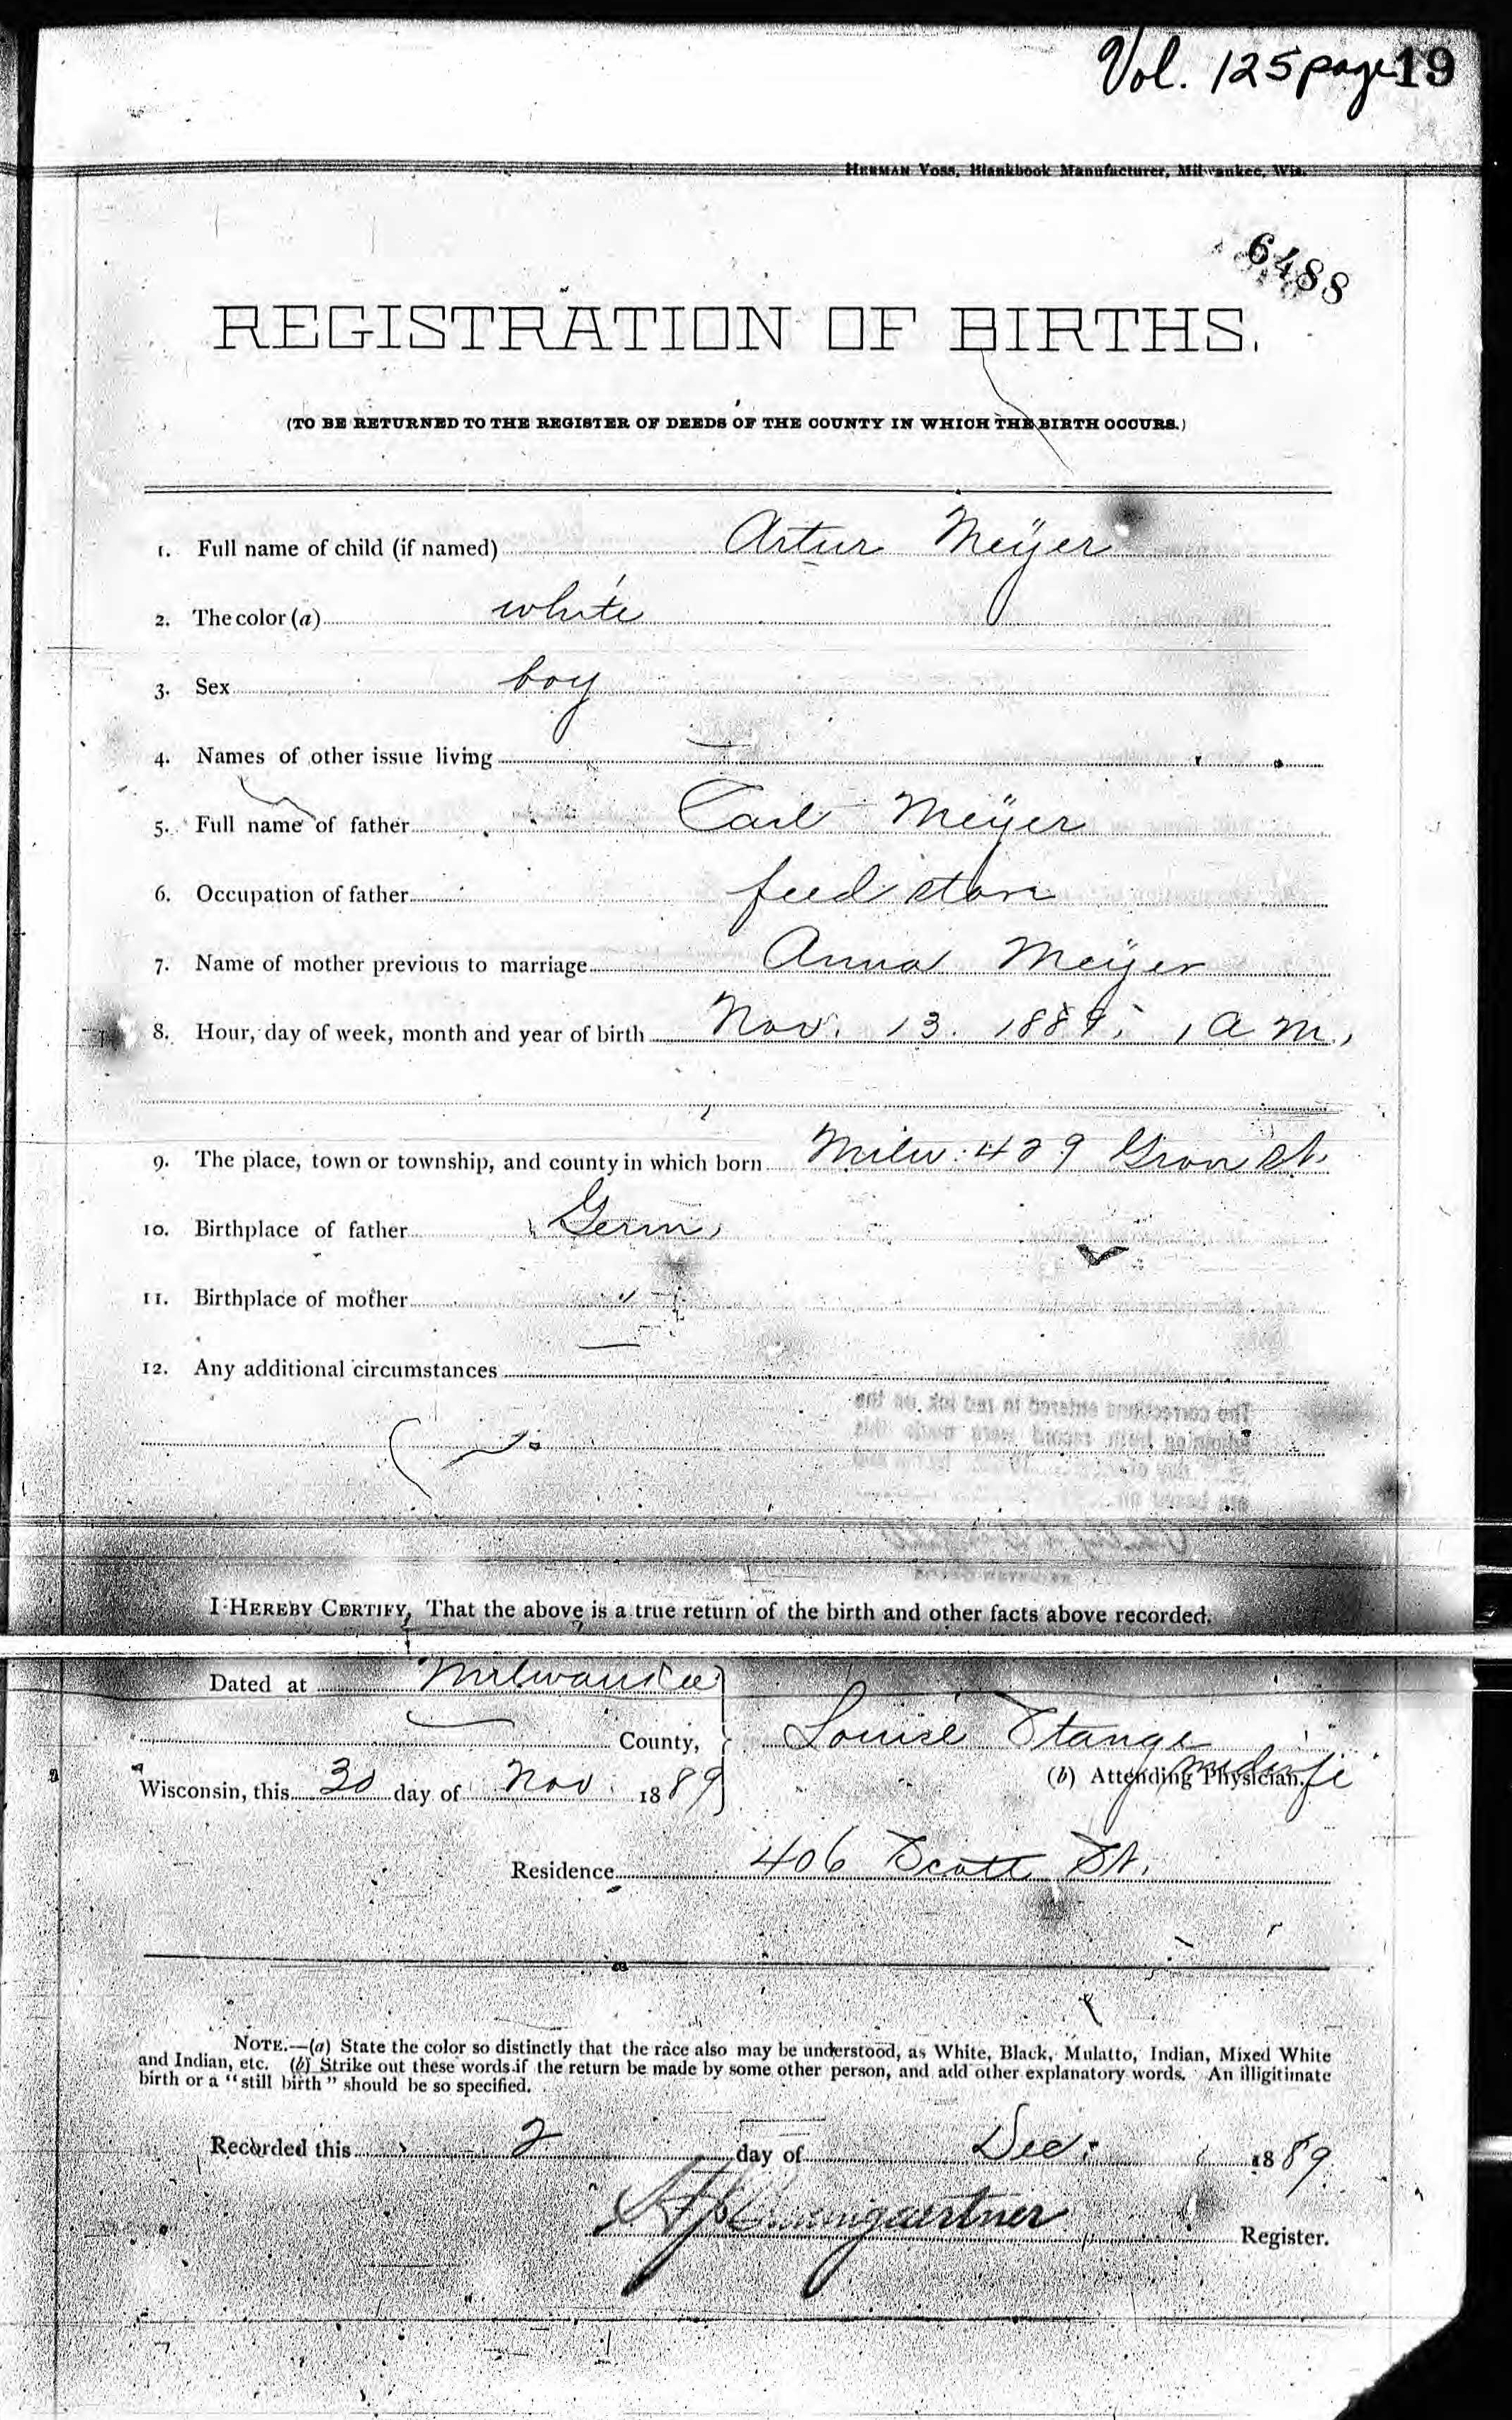 Vol. 125 page 19
HERMAN VOSS, Blankbook Manufacturer, Milwaukee, Wis.
6488
REGISTRATION OF BIRTHS.
(TO BE RETURNED TO THE REGISTER OF DEEDS OF THE COUNTY IN WHICH THE BIRTH OCCURS.)
1. Full name of child (if named) Artur Meÿer
2. The color (a) white
3. Sex boy
4. Names of other issue living
5. Full name of father Carl Meÿer
6. Occupation of father feed store
7. Name of mother previous to marriage Anna Meÿer
8. Hour, day of week, month and year of birth Nov. 13. 1889; 1 a m.,
9. The place, town or township, and county in which born Milw. 429 Grove St.
10. Birthplace of father Germ,
11. Birthplace of mother "
12. Any additional circumstances
I HEREBY CERTIFY, That the above is a true return of the birth and other facts above recorded.
Dated at Milwaukee
County, Louise Stange
midwife
Wisconsin, this 30 day of Nov. 1889 (b) Attending Physician.
Residence 406 Scott St.
NOTE.—(a) State the color so distinctly that the race also may be understood, as White, Black, Mulatto, Indian, Mixed White
and Indian, etc. (b) Strike out these words if the return be made by some other person, and add other explanatory words. An illigitimate
birth or a "still birth" should be so specified.
Recorded this 2 day of Dec. 1889.
Baumgaertner Register.